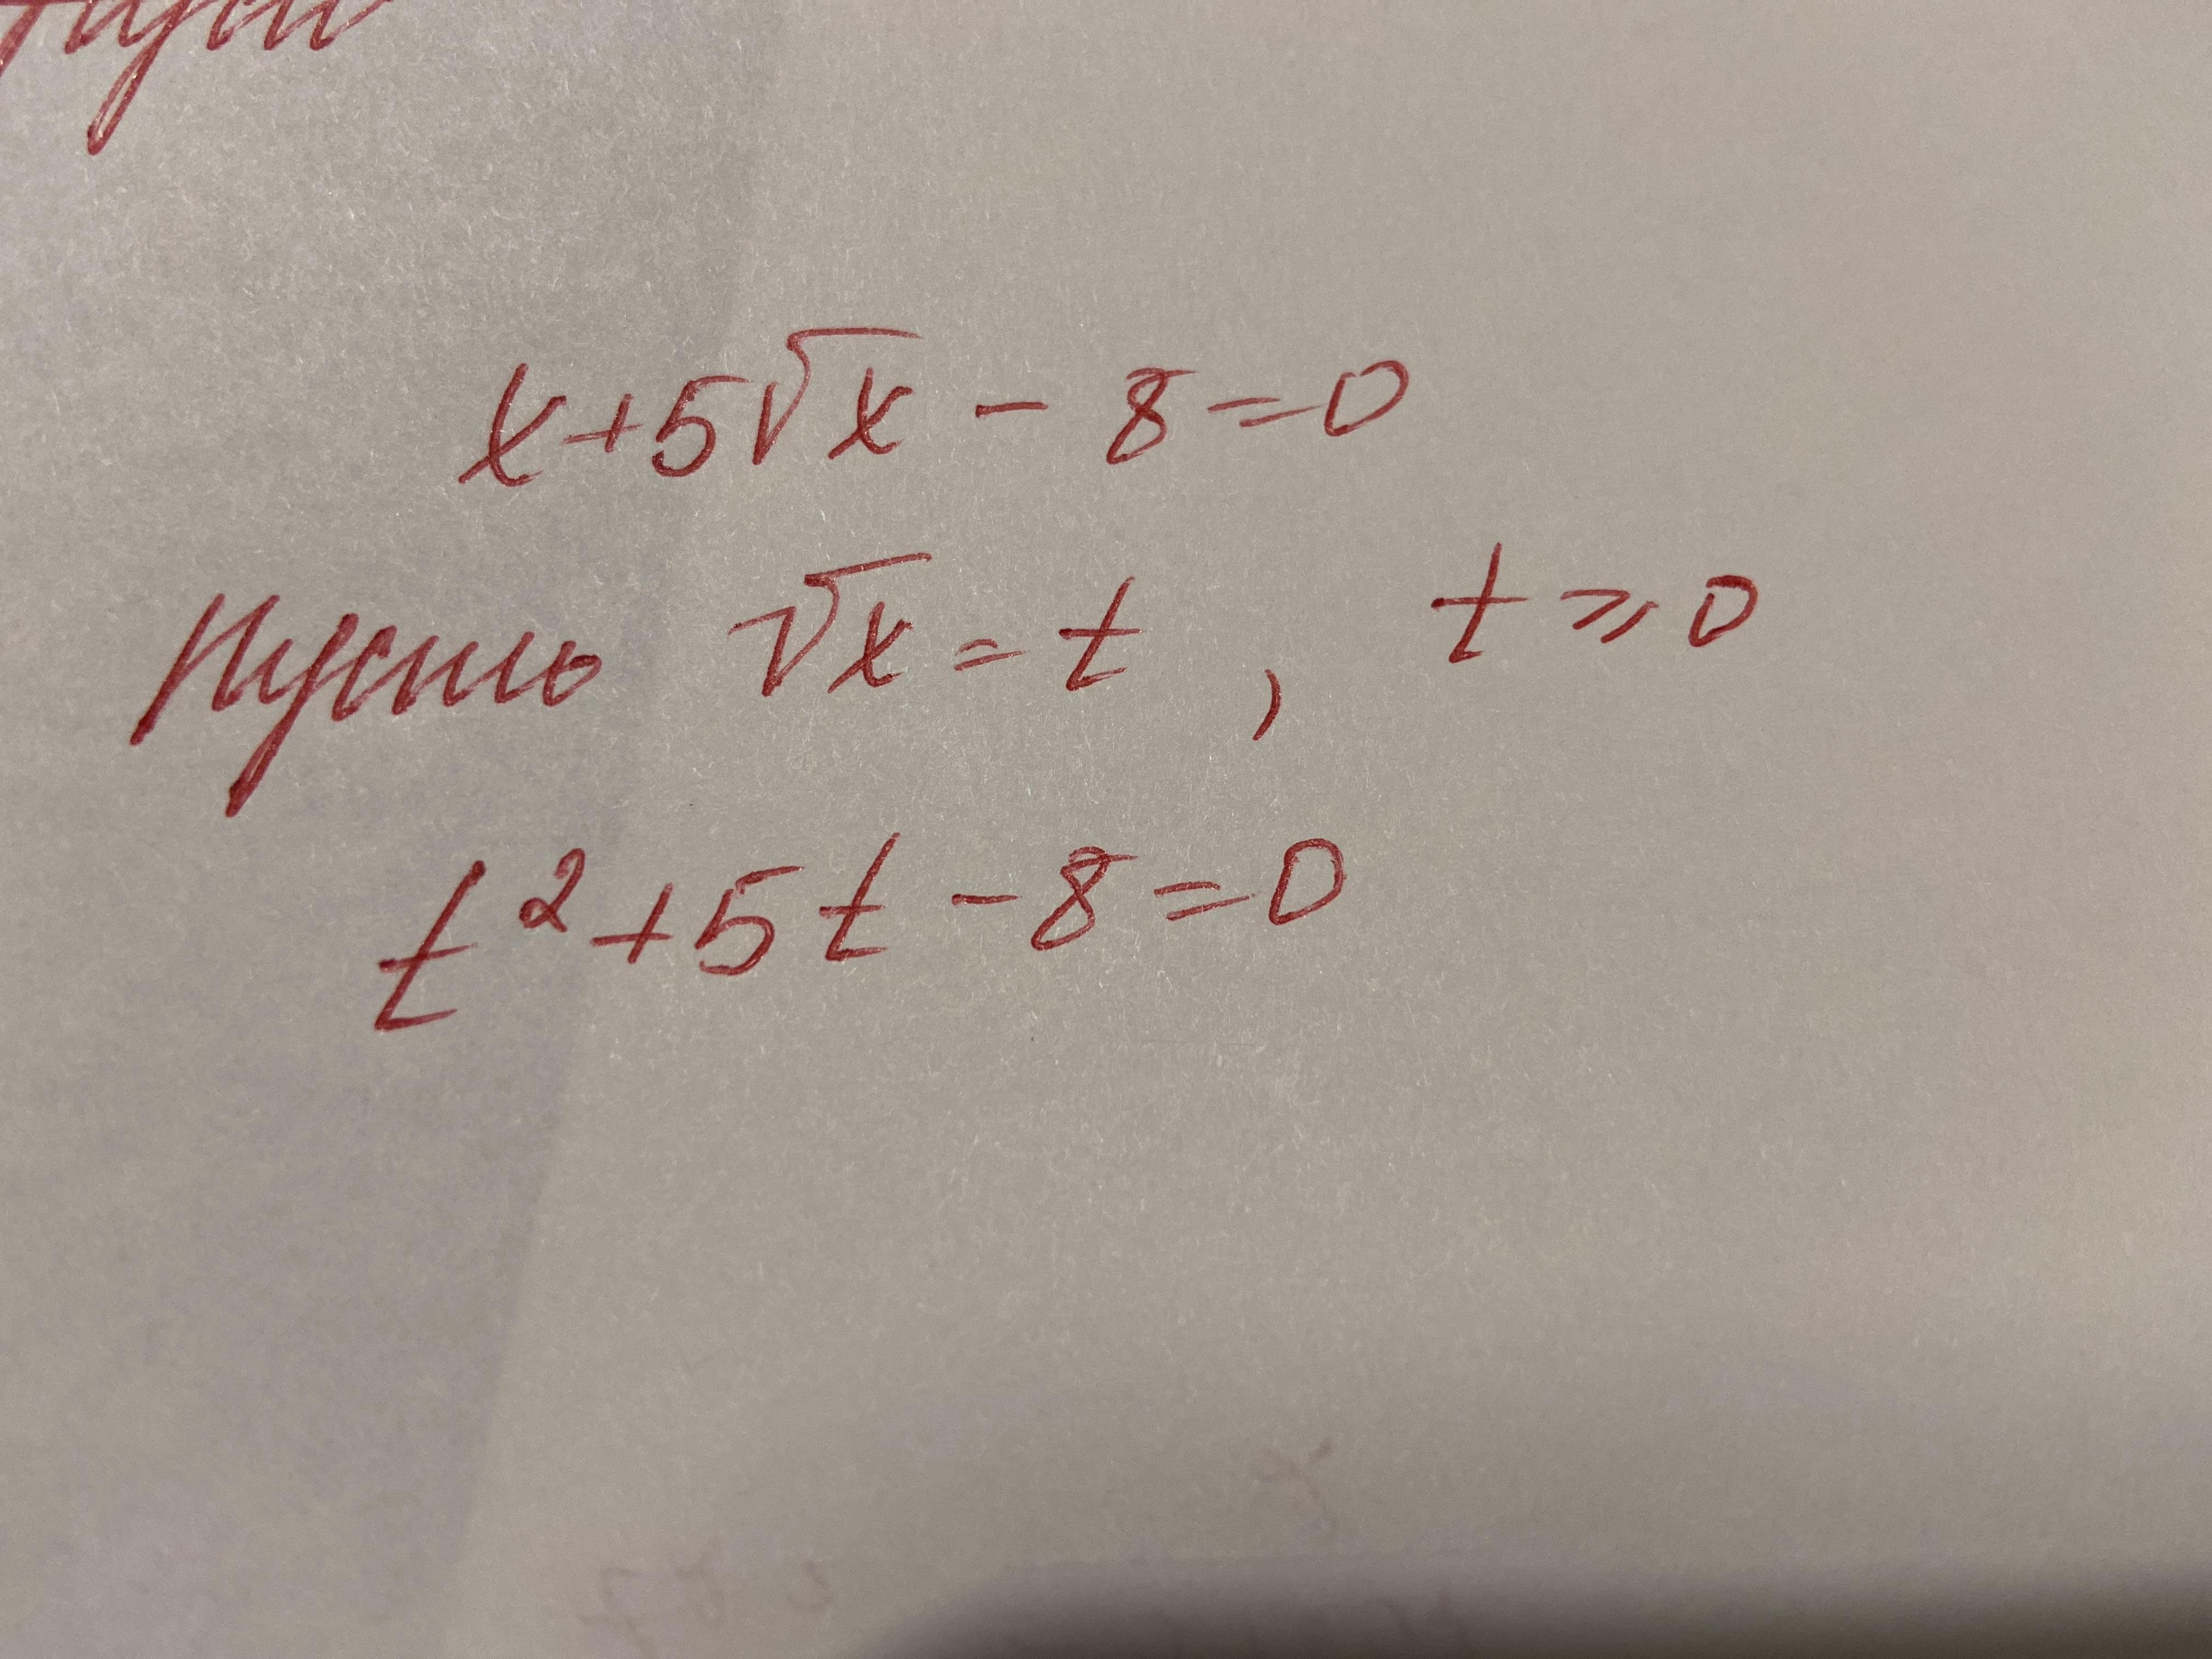 x+5√x - 8=0
Пусть √x = t , t ⩾ 0
t²+5t - 8=0